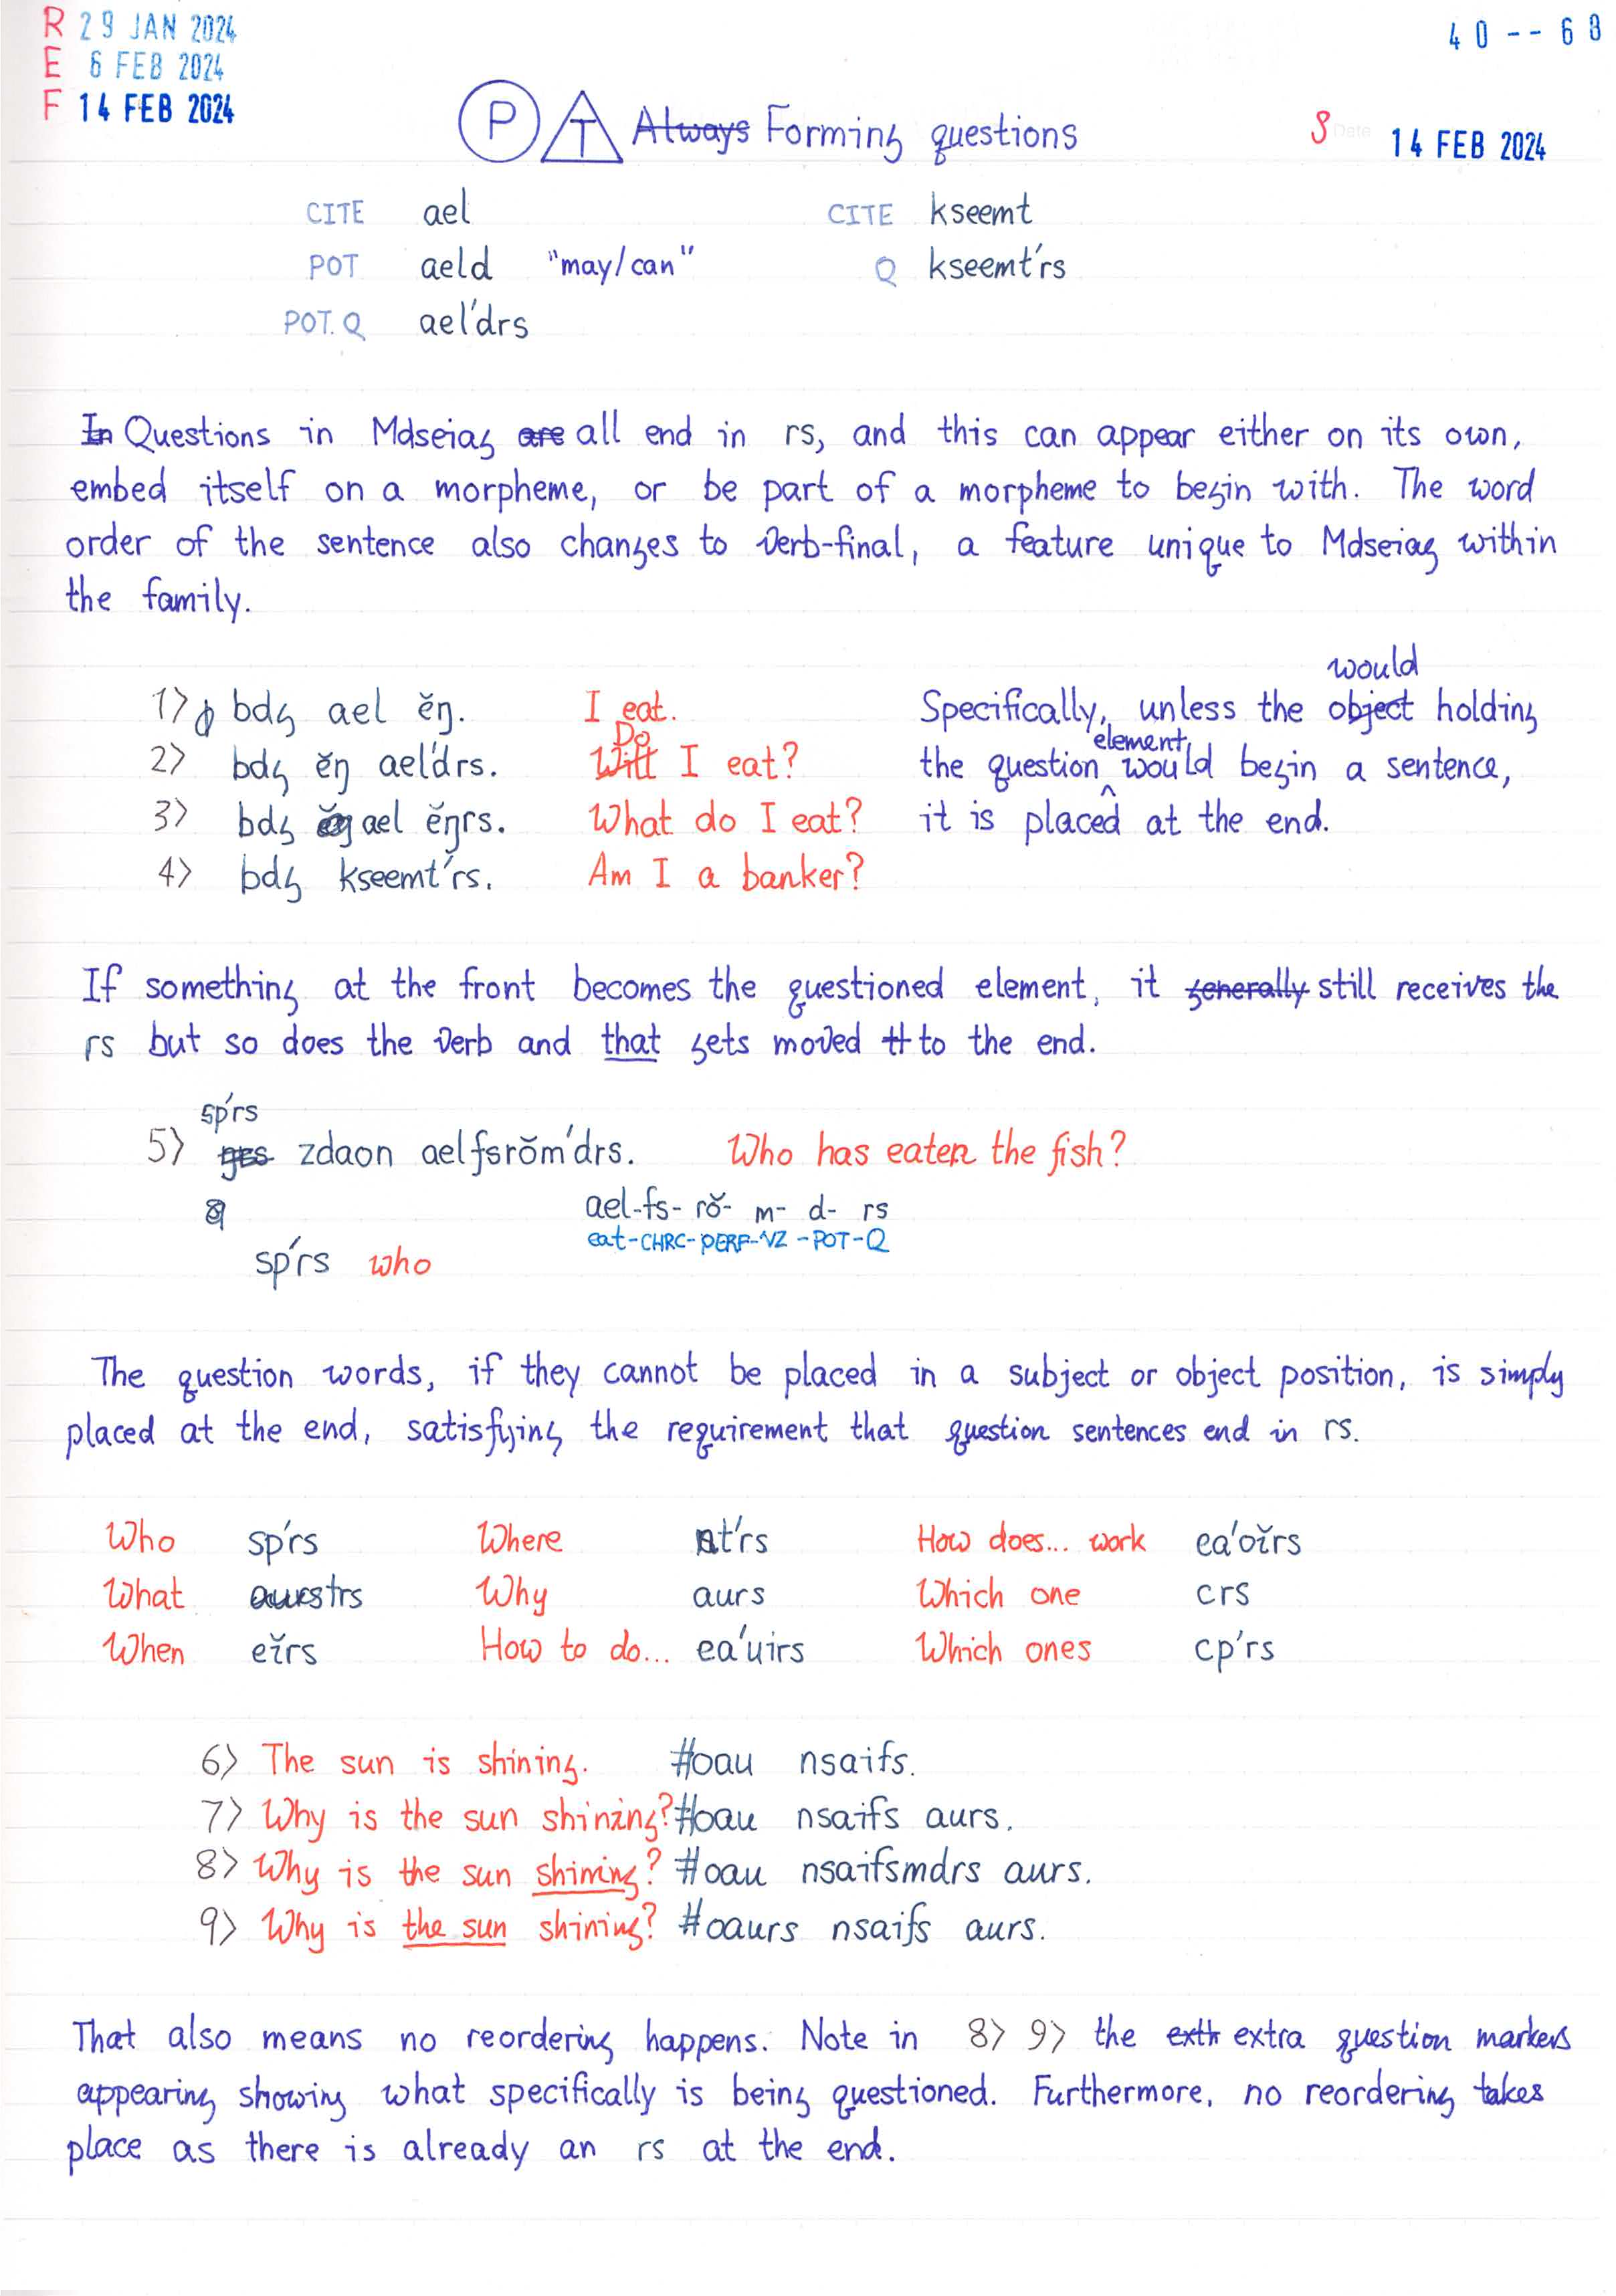 R 29 JAN 2024
E 6 FEB 2024
F 14 FEB 2024
40--68
P T Always Forming questions
S Date 14 FEB 2024
CITE ael CITE kseemt
POT aeld "may/can" Q kseemt'rs
POT.Q ael'drs
In Questions in Mdseiag are all end in rs, and this can appear either on its own,
embed itself on a morpheme, or be part of a morpheme to begin with. The word
order of the sentence also changes to verb-final, a feature unique to Mdseiag within
the family.
1> bdg ael ĕŋ. I eat.
2> bdg ĕŋ ael'drs. Will Do I eat?
3> bdg ael ĕŋrs. What do I eat?
4> bdg kseemt'rs. Am I a banker?
would
Specifically, unless the object holding
the question element would begin a sentence,
it is placed at the end.
If something at the front becomes the questioned element, it generally still receives the
rs but so does the verb and that gets moved to the end.
sp'rs
5> zdaon aelfsrŏm'drs. Who has eaten the fish?
ael-fs-rŏ-m-d-rs
eat-CHRC-PERF-VZ-POT-Q
sp'rs who
The question words, if they cannot be placed in a subject or object position, is simply
placed at the end, satisfying the requirement that question sentences end in rs.
Who sp'rs Where nt'rs How does... work ea'oĭrs
What strs Why aurs Which one crs
When eĭrs How to do... ea'uirs Which ones cp'rs
6> The sun is shining. #oau nsaifs.
7> Why is the sun shining? #oau nsaifs aurs.
8> Why is the sun shining? #oau nsaifsmdrs aurs.
9> Why is the sun shining? #oaurs nsaifs aurs.
That also means no reordering happens. Note in 8> 9> the exth extra question markers
appearing showing what specifically is being questioned. Furthermore, no reordering takes
place as there is already an rs at the end.